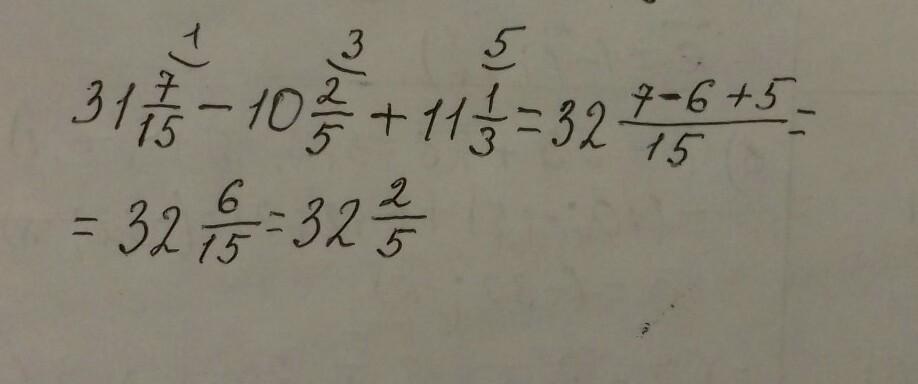 31 7/15 (1) − 10 2/5 (3) + 11 1/3 (5) = 32 (7−6+5)/15 =
= 32 6/15 = 32 2/5